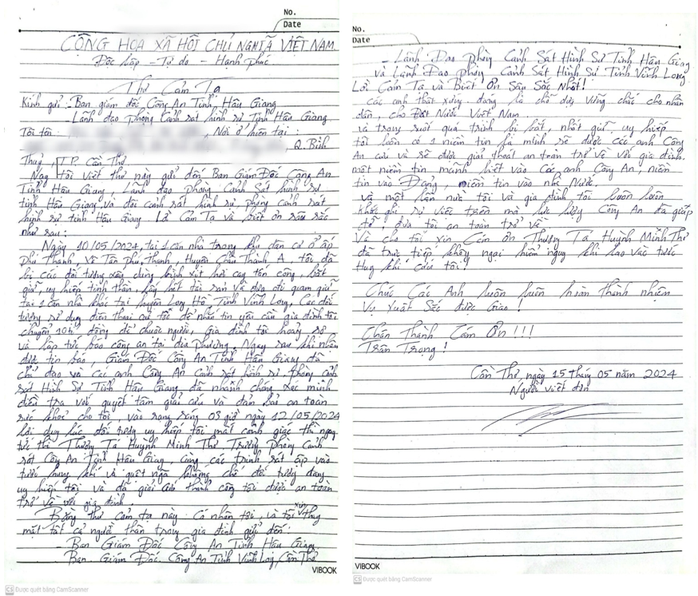 No.
Date
CỘNG HÒA XÃ HỘI CHỦ NGHĨA VIỆT NAM
Độc lập - Tự do - Hạnh phúc
Thư Cảm Tạ
Kính gửi - Ban giám đốc Công An Tỉnh Hậu Giang
- Lãnh đạo phòng cảnh sát hình sự Tỉnh Hậu Giang
Tôi tên: Nơi ở hiện tại:
Q. Bình
Thủy, TP. Cần Thơ
Nay Tôi Viết thư này gửi đến Ban Giám Đốc Công An
Tỉnh Hậu Giang, Lãnh đạo phòng Cảnh Sát hình sự
tỉnh Hậu Giang và đội cảnh sát hình sự phòng cảnh sát
hình sự tỉnh Hậu Giang Lời Cảm Tạ và biết ơn sâu sắc
như sau:
Ngày 10/05/2024, tại 1 căn nhà trong khu dân cư ở ấp
Phú Thạnh, Xã Tân Phú Thạnh, Huyện Châu Thành A, tôi đã
bị các đối tượng xấu dùng bình xịt hơi cay tấn công, bắt
giữ, uy hiếp tinh thần, lấy hết tài sản và đưa đi giam giữ
tại 1 căn nhà khác tại huyện Long Hồ Tỉnh Vĩnh Long, Các đối
tượng sử dụng điện thoại của tôi để nhắn tin yêu cầu gia đình tôi
chuyển 10 tỉ đồng để chuộc người, Gia đình tôi hoảng sợ
và lập tức báo công an tại địa phương. Ngay sau khi nhận
được tin báo Giám Đốc Công An Tỉnh Hậu Giang đã
chỉ đạo và các anh Công An Cảnh sát hình sự phòng cảnh
sát Hình Sự Tỉnh Hậu Giang đã nhanh chóng xác minh
điều tra với quyết tâm giải cứu và đảm bảo an toàn
sức khỏe cho tôi, vào rạng sáng 03 giờ ngày 12/05/2024
lợi dụng lúc đối tượng uy hiếp tôi mất cảnh giác thì ngay
tức thì Thượng Tá Huỳnh Minh Thơ Trưởng phòng Cảnh
sát Công An Tỉnh Hậu Giang, cùng các trinh sát ập vào
tước hung khí và quật ngã, khống chế đối tượng đang
uy hiếp tôi và đã giải cứu thành công tôi được an toàn
trở về với gia đình.
Bằng thư cảm tạ này. Cá nhân tôi, và tôi xin thay
mặt tất cả người thân trong gia đình gửi đến:
- Ban Giám Đốc Công An Tỉnh Hậu Giang
Ban Giám Đốc Công An Tỉnh Vĩnh Long, Cần Thơ
VIBOOK
CS Được quét bằng CamScanner
No.
Date
- Lãnh Đạo phòng Cảnh Sát Hình Sự Tỉnh Hậu Giang
và Lãnh Đạo phòng Cảnh Sát Hình Sự Tỉnh Vĩnh Long
Lời Cảm Tạ và Biết Ơn Sâu Sắc Nhất!
Các anh thật xứng đáng là chỗ dựa vững chắc cho nhân
dân, cho Đất Nước Việt Nam.
và trong suốt quá trình bị bắt, nhốt giữ, uy hiếp
tôi luôn có 1 niềm tin là mình sẽ được các anh Công
An cứu và sẽ được giải thoát an toàn trở về với gia đình.
một niềm tin mãnh liệt vào Các anh Công An, niềm
tin vào Đảng, niềm tin vào nhà Nước.
và một lần nữa tôi và gia đình tôi luôn luôn
khắc ghi sự việc trên mà lực lượng Công An đã giúp
đỡ, đưa tôi an toàn trở về.
Và cho tôi xin Cảm ơn Thượng Tá Huỳnh Minh Thơ
đã trực tiếp không ngại hiểm nguy khi lao vào tước
Hung khí cứu tôi!
Chúc Các Anh luôn luôn hoàn thành nhiệm
Vụ Xuất Sắc được Giao!
Chân Thành Cám Ơn!!!
Trân Trọng!
Cần Thơ, ngày 15 tháng 05 năm 2024
Người viết đơn
VIBOOK
CS Được quét bằng CamScanner